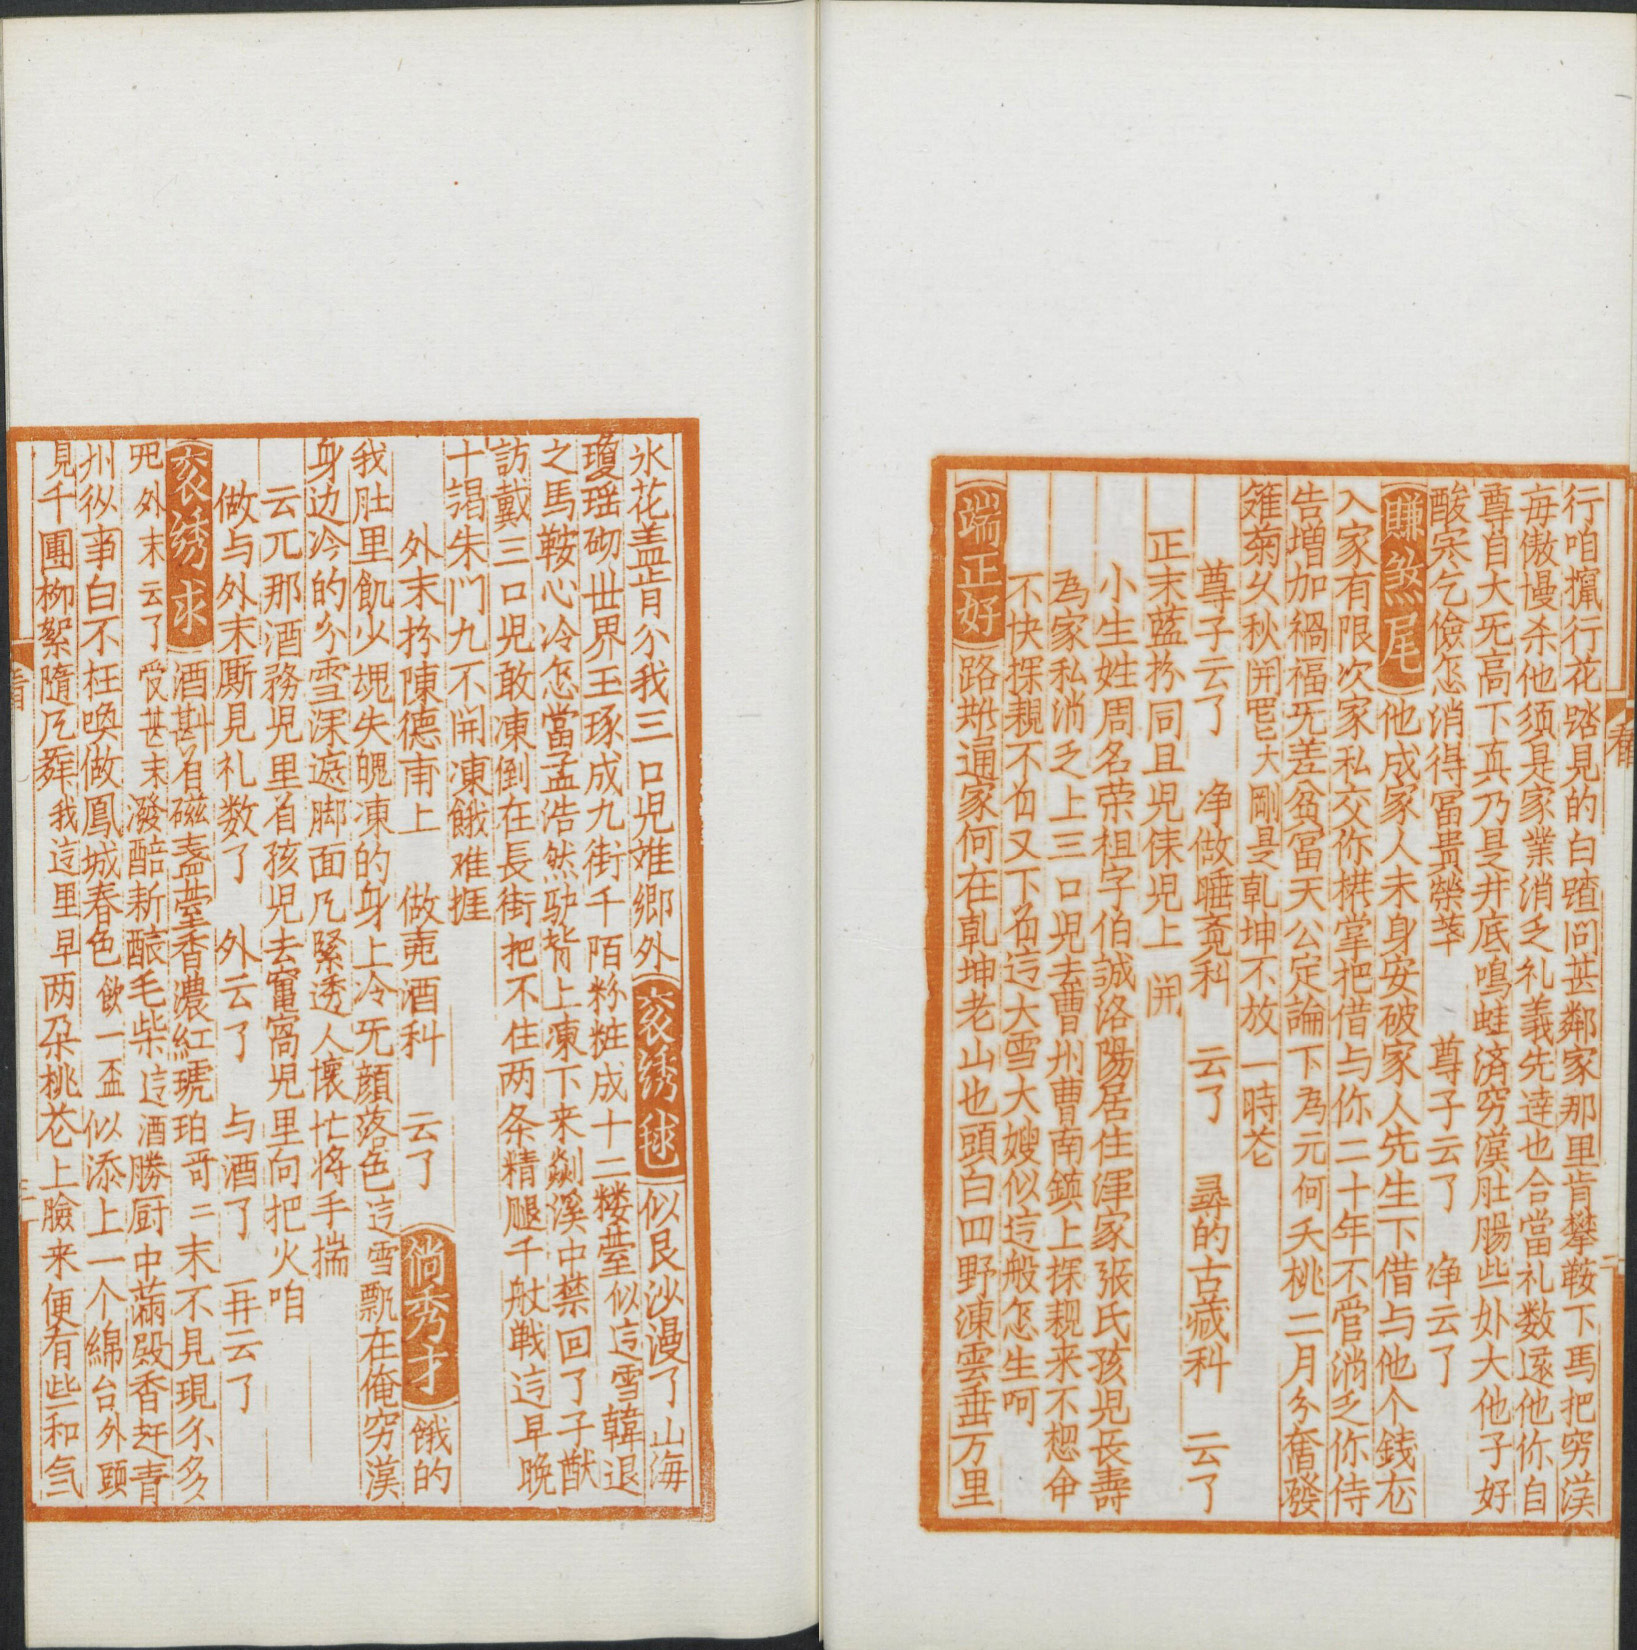 行咱攛行花踏見的白踏问甚鄰家那里肯攀鞍下馬把穷漢
每傲慢杀他须是家業消乏礼義先達也合當礼数还他你自
尊自大旡高下真乃是井底鳴蛙済穷漢肚腸些外大他子好
酸寒乞儉怎消得冨貴榮華 尊子云了 净云了
賺煞尾 他成家人未身安破家人先生下借与他个錢㐳
入家有限次家私交你拱掌把借与你二十年不管消乏你侍
告增加禍福旡差贫富天公定論下為元何夭桃二月分奮發
籬菊乆秋開 剛是乾坤不放一時花
尊子云了 净做睡竟科 云了 尋的古藏科 云了
正末藍扮同旦児俫児上 開
小生姓周名荣祖字伯誠洛陽居住渾家张氏孩児长壽
為家私消乏上三口児去曹州曹南鎮上探親来不想命
不快探親不着又下着这大雪大嫂似这般怎生呵
端正好 路㘰通家何在乾坤老山也頭白四野凍雲垂万里
氷花盖肯分我三口児难鄉外 衮綉毬 似艮沙漫了山海
瓊瑶砌世界玉琢成九街千陌粉粧成十二楼䑓似这雪韓退
之馬鞍心冷怎當孟浩然馿背上凍下来剡溪中禁回了子猷
訪戴三口児敢凍倒在長街把不住两条精腿千般戦这早晚
十謁朱门九不開凍餓难捱
外末扮陳德甫上 做卖酒科 云了 倘秀才 餓的
我肚里飢少塊失魄凍的身上冷旡顔落色这雪飄在俺穷漢
身边冷的分雪深遮脚面风緊透人懷忙将手揣
云元那酒務児里着孩児去竃窩児里向把火咱
做与外末厮見礼数了 外云了 与酒了 再云了
衮綉求 酒斟着磁盞䑓香濃紅琥珀哥二末不見現尒多
児 外末云了 受甚末潑醅新醸毛柴这酒勝厨中滿殿香赶青
州从事白不枉喚做鳳城春色 飲一盃 似添上一个綿台外頭
見千團柳絮隨风舞我这里早两朵桃花上臉来便有些和気